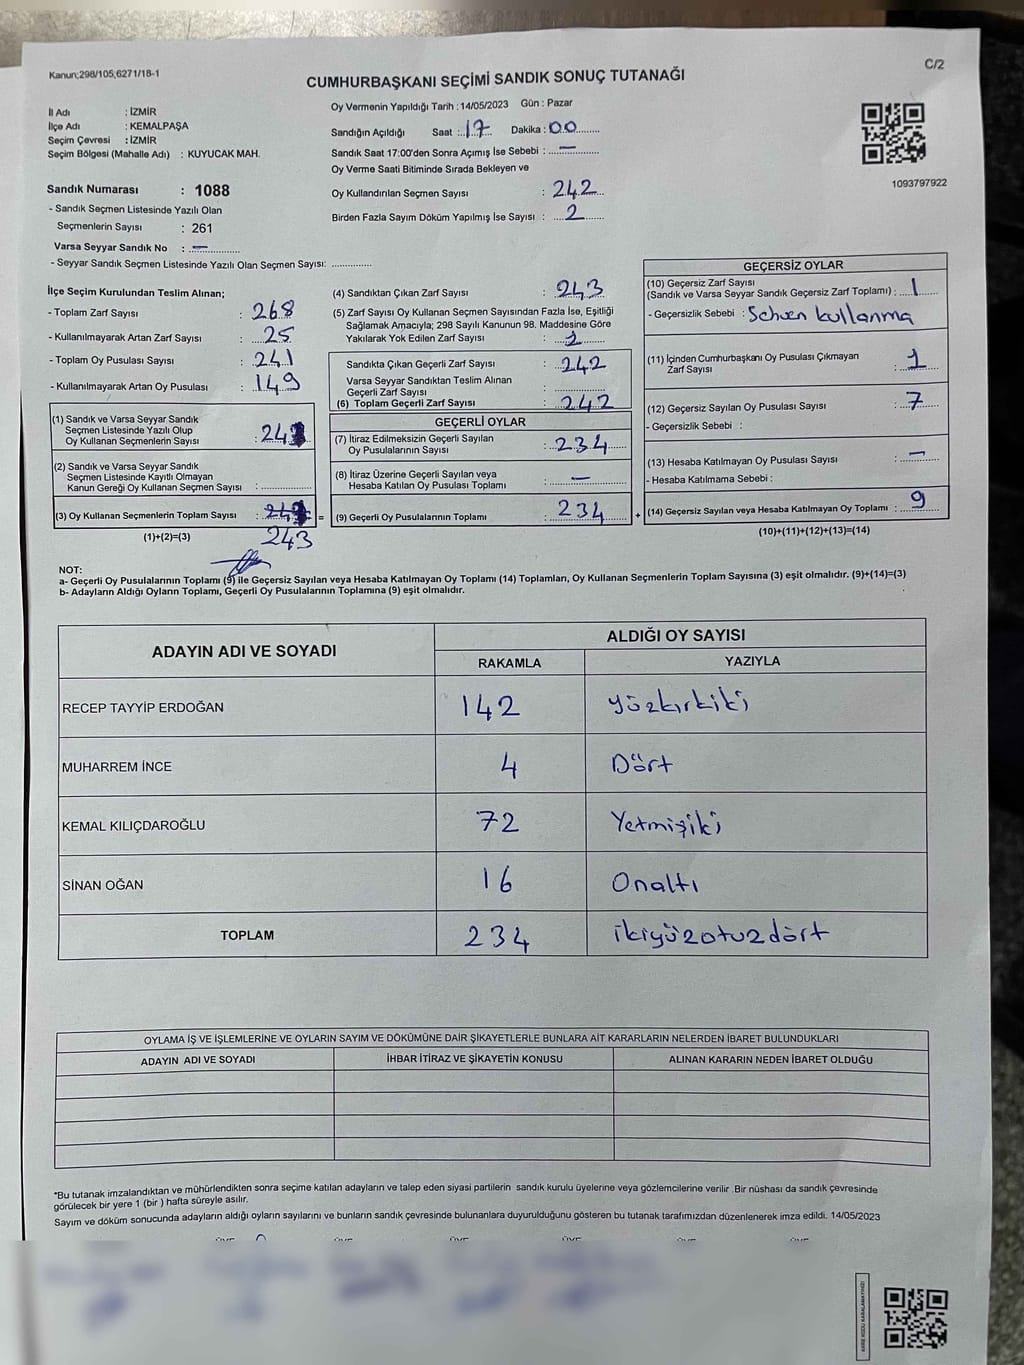 Kanun;298/105,6271/18-1
C/2
CUMHURBAŞKANI SEÇİMİ SANDIK SONUÇ TUTANAĞI
İl Adı : İZMİR
İlçe Adı : KEMALPAŞA
Seçim Çevresi : İZMİR
Seçim Bölgesi (Mahalle Adı) : KUYUCAK MAH.
Oy Vermenin Yapıldığı Tarih : 14/05/2023 Gün : Pazar
Sandığın Açıldığı Saat : 17 Dakika : 00
Sandık Saat 17:00'den Sonra Açımış İse Sebebi : —
Oy Verme Saati Bitiminde Sırada Bekleyen ve
Oy Kullandırılan Seçmen Sayısı : 242
Birden Fazla Sayım Döküm Yapılmış İse Sayısı : 2
1093797922
Sandık Numarası : 1088
- Sandık Seçmen Listesinde Yazılı Olan
Seçmenlerin Sayısı : 261
Varsa Seyyar Sandık No : —
- Seyyar Sandık Seçmen Listesinde Yazılı Olan Seçmen Sayısı: ...............
İlçe Seçim Kurulundan Teslim Alınan;
- Toplam Zarf Sayısı : 268
- Kullanılmayarak Artan Zarf Sayısı : 25
- Toplam Oy Pusulası Sayısı : 241
- Kullanılmayarak Artan Oy Pusulası : 149
(1) Sandık ve Varsa Seyyar Sandık
Seçmen Listesinde Yazılı Olup
Oy Kullanan Seçmenlerin Sayısı : 24
(2) Sandık ve Varsa Seyyar Sandık
Seçmen Listesinde Kayıtlı Olmayan
Kanun Gereği Oy Kullanan Seçmen Sayısı :
(3) Oy Kullanan Seçmenlerin Toplam Sayısı : =
(1)+(2)=(3) 243
(4) Sandıktan Çıkan Zarf Sayısı : 243
(5) Zarf Sayısı Oy Kullanan Seçmen Sayısından Fazla İse, Eşitliği
Sağlamak Amacıyla; 298 Sayılı Kanunun 98. Maddesine Göre
Yakılarak Yok Edilen Zarf Sayısı : 1
Sandıkta Çıkan Geçerli Zarf Sayısı : 242
Varsa Seyyar Sandıktan Teslim Alınan
Geçerli Zarf Sayısı :
(6) Toplam Geçerli Zarf Sayısı : 242
GEÇERLİ OYLAR
(7) İtiraz Edilmeksizin Geçerli Sayılan
Oy Pusulalarının Sayısı : 234
(8) İtiraz Üzerine Geçerli Sayılan veya
Hesaba Katılan Oy Pusulası Toplamı : —
(9) Geçerli Oy Pusulalarının Toplamı : 234 +
GEÇERSİZ OYLAR
(10) Geçersiz Zarf Sayısı
(Sandık ve Varsa Seyyar Sandık Geçersiz Zarf Toplamı) : 1
- Geçersizlik Sebebi : Sehven kullanma
(11) İçinden Cumhurbaşkanı Oy Pusulası Çıkmayan
Zarf Sayısı : 1
(12) Geçersiz Sayılan Oy Pusulası Sayısı : 7
- Geçersizlik Sebebi :
(13) Hesaba Katılmayan Oy Pusulası Sayısı : —
- Hesaba Katılmama Sebebi :
(14) Geçersiz Sayılan veya Hesaba Katılmayan Oy Toplamı : 9
(10)+(11)+(12)+(13)=(14)
NOT:
a- Geçerli Oy Pusulalarının Toplamı (9) ile Geçersiz Sayılan veya Hesaba Katılmayan Oy Toplamı (14) Toplamları, Oy Kullanan Seçmenlerin Toplam Sayısına (3) eşit olmalıdır. (9)+(14)=(3)
b- Adayların Aldığı Oyların Toplamı, Geçerli Oy Pusulalarının Toplamına (9) eşit olmalıdır.
ADAYIN ADI VE SOYADI
ALDIĞI OY SAYISI
RAKAMLA YAZIYLA
RECEP TAYYİP ERDOĞAN 142 yüzkırkiki
MUHARREM İNCE 4 Dört
KEMAL KILIÇDAROĞLU 72 Yetmişiki
SİNAN OĞAN 16 Onaltı
TOPLAM 234 ikiyüzotuzdört
OYLAMA İŞ VE İŞLEMLERİNE VE OYLARIN SAYIM VE DÖKÜMÜNE DAİR ŞİKAYETLERLE BUNLARA AİT KARARLARIN NELERDEN İBARET BULUNDUKLARI
ADAYIN ADI VE SOYADI İHBAR İTİRAZ VE ŞİKAYETİN KONUSU ALINAN KARARIN NEDEN İBARET OLDUĞU
*Bu tutanak imzalandıktan ve mühürlendikten sonra seçime katılan adayların ve talep eden siyasi partilerin sandık kurulu üyelerine veya gözlemcilerine verilir .Bir nüshası da sandık çevresinde
görülecek bir yere 1 (bir ) hafta süreyle asılır.
Sayım ve döküm sonucunda adayların aldığı oyların sayılarını ve bunların sandık çevresinde bulunanlara duyurulduğunu gösteren bu tutanak tarafımızdan düzenlenerek imza edildi. 14/05/2023